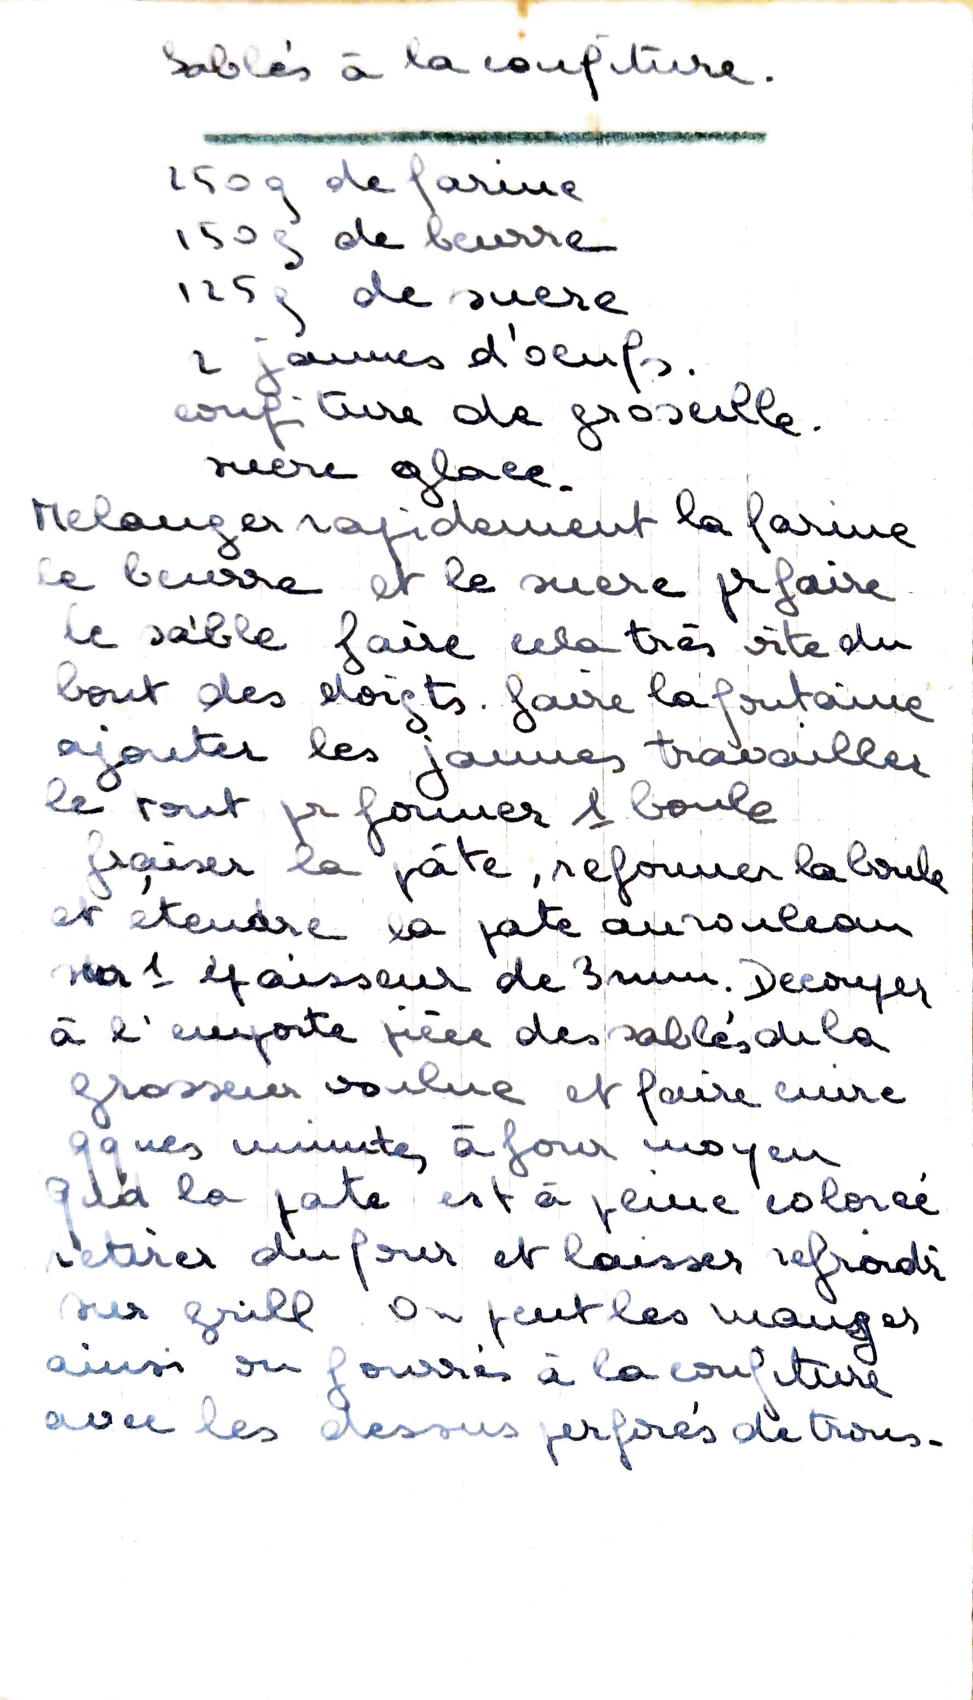 Sablés à la confiture.
250g de farine
150g de beurre
125g de sucre
2 jaunes d'oeufs.
confiture de groseille.
sucre glace.
Melanger rapidement la farine
le beurre et le sucre pr faire
le sable faire cela très vite du
bout des doigts. faire la fontaine
ajouter les jaunes travailler
le tout pr former 1 boule
fraiser la pâte, reformer la boule
et étendre la pate au rouleau
sur 1 épaisseur de 3 mm. Decouper
à l'emporte pièce des sablés de la
grosseur voulue et faire cuire
qques minutes à four moyen
qud la pate est à peine colorée
retirer du four et laisser refroidi
sur grill. On peut les manger
ainsi ou fourrés à la confiture
avec les dessus perforés de trous.